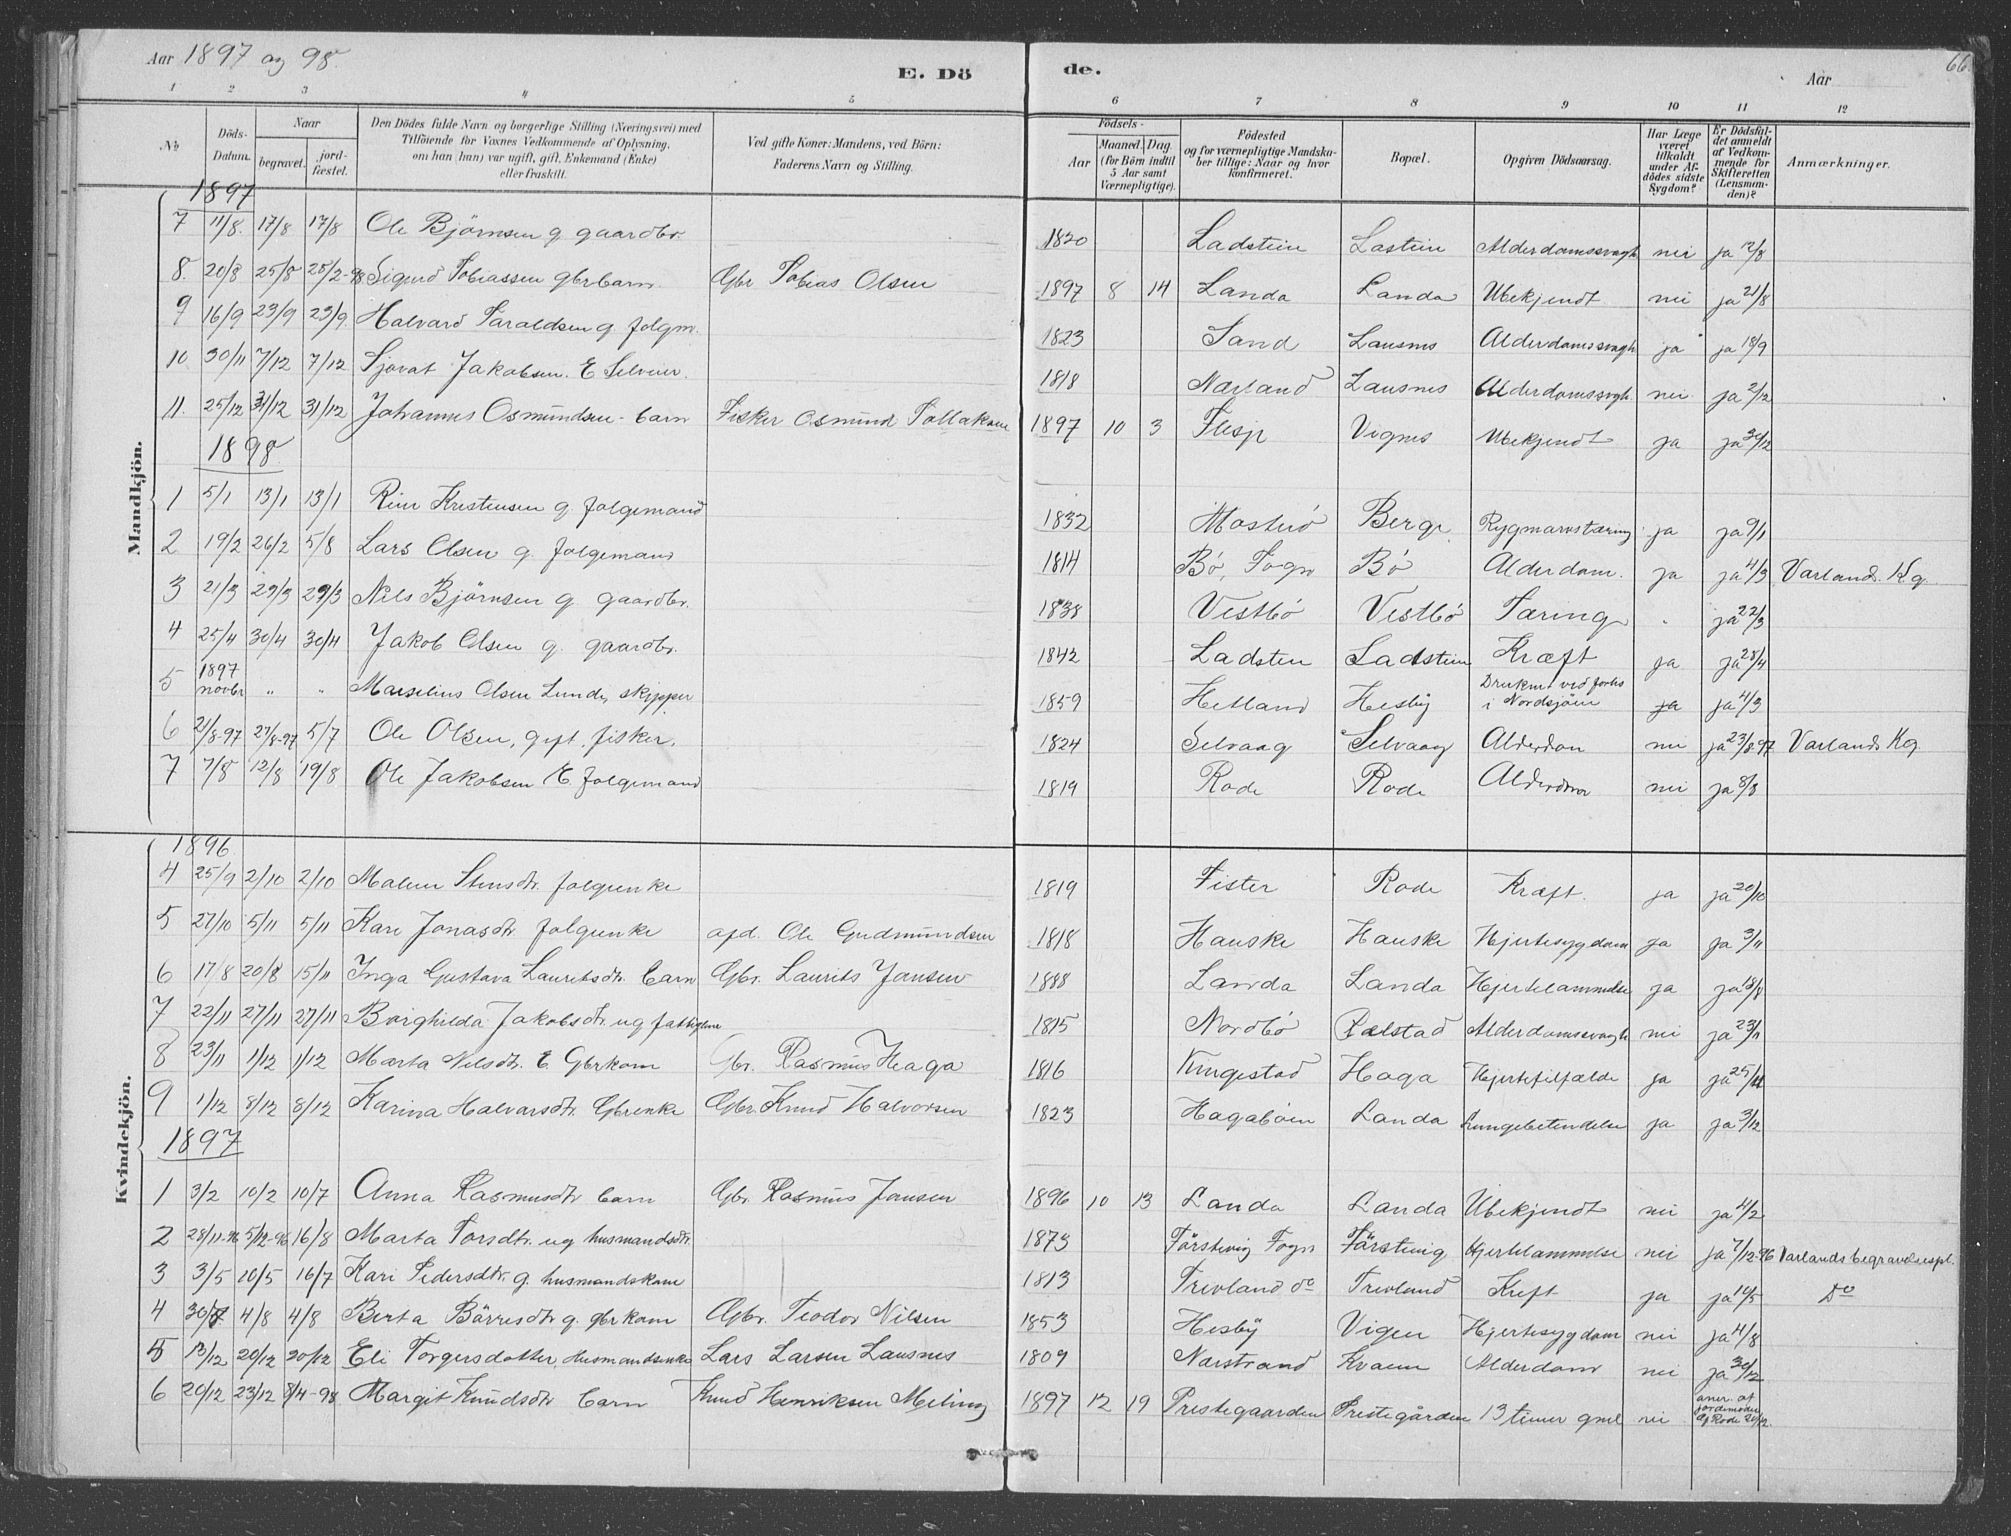 Aar 1897 og 98. E. Dö de. Aar 66.
1 2 3 4 5 6 7 8 9 10 11 12
No Döds-Datum. Naar begravet. jordfæstet. Den Dödes fulde Navn og borgerlige Stilling (Næringsvei) med Tilföiende for Voxnes Vedkommende af Oplysning, om han (hun) var ugift, gift, Enkemand (Enke) eller fraskilt. Ved gifte Koner: Mandens, ved Börn: Faderens Navn og Stilling. Födsels- Aar Maaned. Dag. (for Börn indtil 5 Aar samt Værnepligtige). Födested og for værnepligtige Mandskaber tillige: Naar og hvor konfirmeret. Bopæl. Opgiven Dödsaarsag. Har Læge været tilkaldt under Afdödes sidste Sygdom? Er Dödsfaldet anmeldt af Vedkommende for Skifteretten (Lensmanden)? Anmærkninger.
Mandkjön.
1897
7 11/8. 17/8 17/8 Ole Björnsen g. gaardbr. 1820 Ladstein Lastein Alderdomssvagh nei ja 12/8
8. 20/8 25/8 25/2-98 Sigurd Tobiassen gbrbarn Gbr Tobias Olsen 1897 8 14 Landa Landa Ubekjendt nei ja 21/8
9 16/9 23/9 23/9 Halvard Taraldsen g. folgm. 1823 Sand Lausnes Alderdomssvagh ja ja 18/9
10 30/11 7/12 7/12 Sjovat Jakobsen. E Selveier. 1818 Narland Lausnes Alderdomssvagh. nei. ja 2/12
11. 25/12 31/12 31/12 Johannes Osmundsen - barn Fisker Osmund Tollaksen 1897 10 3 Vignes Ubekjendt ja ja 30/12
1898
1 5/1 13/1 13/1 Kristensen g folgemand 1832 Mosterö Berge Rygmarvstæring ja ja 9/1
2 19/2 26/2 5/8 Lars Olsen g. folgemand 1814 Bö, Sogn Bö Alderdom. ja ja 4/3 Varlands Kg.
3 21/3 29/3 29/3 Nils Björnsen g gaardbr. 1838 Vestbö Vestbö Tæring " ja 22/3
4 25/4 30/4 30/4 Jakob Olsen g. gaardbr. 1842 Ladsten Ladstein Kræft ja ja 28/4
5 1897 novbr " " Marselius Olsen Lunde, skipper 1859 Helland Hesby Drukn. ved forlis i Nordsjöen ja ja 4/3
6 21/8-97 27/8-97 5/7 Ole Olsen, gift, fisker. 1824 Selvaag Selvaag Alderdom nei ja 23/8 97 Varlands Kg
7 7/8 12/8 19/8 Ole Jakobsen E. folgemand 1819 Rode Rode Alderdom nei ja 8/8
Kvindekjön.
1896
4 25/9 2/10 2/10 Malene Stensdtr. folgenke 1819 Fister Rode Kræft. ja ja 20/10
5 27/10 5/11 5/11 Kari Jonasdtr. folgenke afd. Ole Gudmundsen 1818 Hauske Hauske Hjertesygdom ja ja 3/11
6 17/8 20/8 15/11 Inga Gustava Lauritsdtr. barn Gbr. Laurits Jansen 1888 Landa Landa Hjertelammelse ja ja 18/8
7 22/11 27/11 27/11 Borghilda Jakobsdtr. ug fattiglem 1815 Nordbö Alderdomssvagh nei ja 23/11
8 23/11 1/12 1/12 Marta Nilsdtr. E Gbrkone Gbr. Rasmus Haga 1816 Kingestad Haga Hjertefilfælde ja ja 25/11
9 1/12 8/12 8/12 Karina Halvarsdtr. Gbrenke Gbr. Knud Halvorsen 1823 Hagaböen Landa Lungebetendelse ja ja 3/12
1897
1 3/2 10/2 10/7 Anna Rasmusdtr barn Gbr. Rasmus Jansen 1896 10 13 Landa Landa Ubekjendt nei ja 4/2
2 28/11-96 5/12-96 16/8 Marta Torsdtr. ug husmandsdtr. 1873 Förstvig Sogn Förstveig Hjertelammelse nei ja 7/12-96 Varlands begravelsespl.
3 3/5 10/5 16/7 Kari Pedersdtr. g. husmandskone 1813 Trevland do Trevland Kreft ja ja 10/5 Do
4 30/7 4/8 4/8 Berta Börresdtr g. gbrkone Gbr. Teodor Nilsen 1853 Hesby Vigen Hjertesygdom nei ja 4/8
5 13/12 20/12 20/12 Eli Torgersdatter, Husmandsenke Lars Larsen Lausnes 1809 Narstrand Kvaine Alderdom nei ja 30/12
6 20/12 23/12 8/4-98 Margit Knudsdtr barn Knud Henriksen Meling 1897 12 19 Prestegaarden Prestegården 13 timer gml nei jordemoder Rode 20/12.